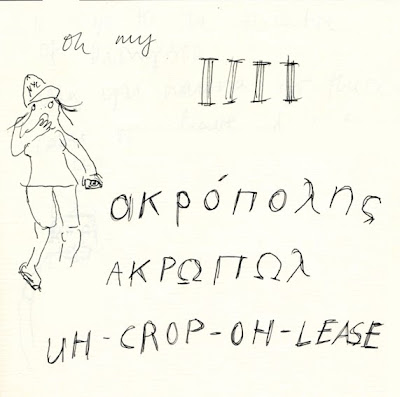 oh my
NYC
ακρόπολης
ΑΚΡΩΠΩλ
UH-CROP-OH-LEASE